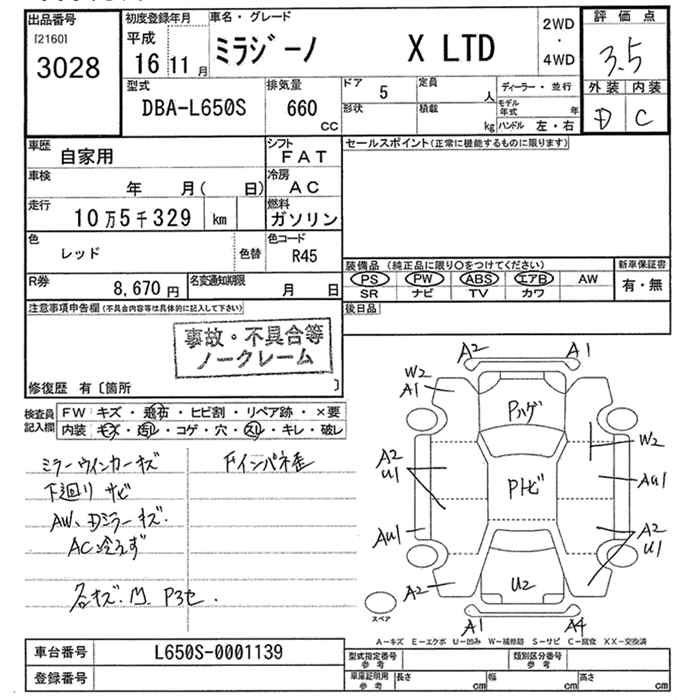 出品番号
[2160]
3028
初度登録年月
平成
16 11 月
車名・グレード
ミラジーノ X LTD
2WD
・
4WD
評価点
3.5
外装 内装
D C
型式
DBA-L650S
排気量
660
CC
ドア 5
形状
定員 人
積載 kg
ディーラー・並行
モデル年式 年
ハンドル 左・右
車歴
自家用
シフト
FAT
車検
年 月( 日)
冷房
AC
走行
10万5千329 km
燃料
ガソリン
色
レッド
色替
色コード
R45
R券
8,670 円
名変通知期限
月 日
セールスポイント(正常に機能するものに限ります)
装備品 (純正品に限り○をつけてください)
新車保証書
PS PW ABS エアB AW
SR ナビ TV カワ
有・無
後日品
注意事項申告欄(不具合内容等は具体的に記入して下さい)
事故・不具合等
ノークレーム
修復歴 有〔箇所 〕
検査員
記入欄
FW キズ・飛石・ヒビ割・リペア跡・×要
内装 キズ・汚レ・コゲ・穴・スレ・キレ・破レ
ミラーウインカーキズ
下廻り サビ
AW、Dミラーキズ.
AC冷えず
A2 A1
W2
A1
Pハゲ
W2
A2
U1
Pトビ
AU1
AU1
A2
U1
A2
U2
A1 A4
スペア
A-キズ E-エクボ U-凹み W-補修跡 S-サビ C-腐食 XX-交換済
車台番号
L650S-0001139
登録番号
型式指定番号
参考
類別区分番号
参考
車庫証明用
参考
長さ cm
幅 cm
高さ cm